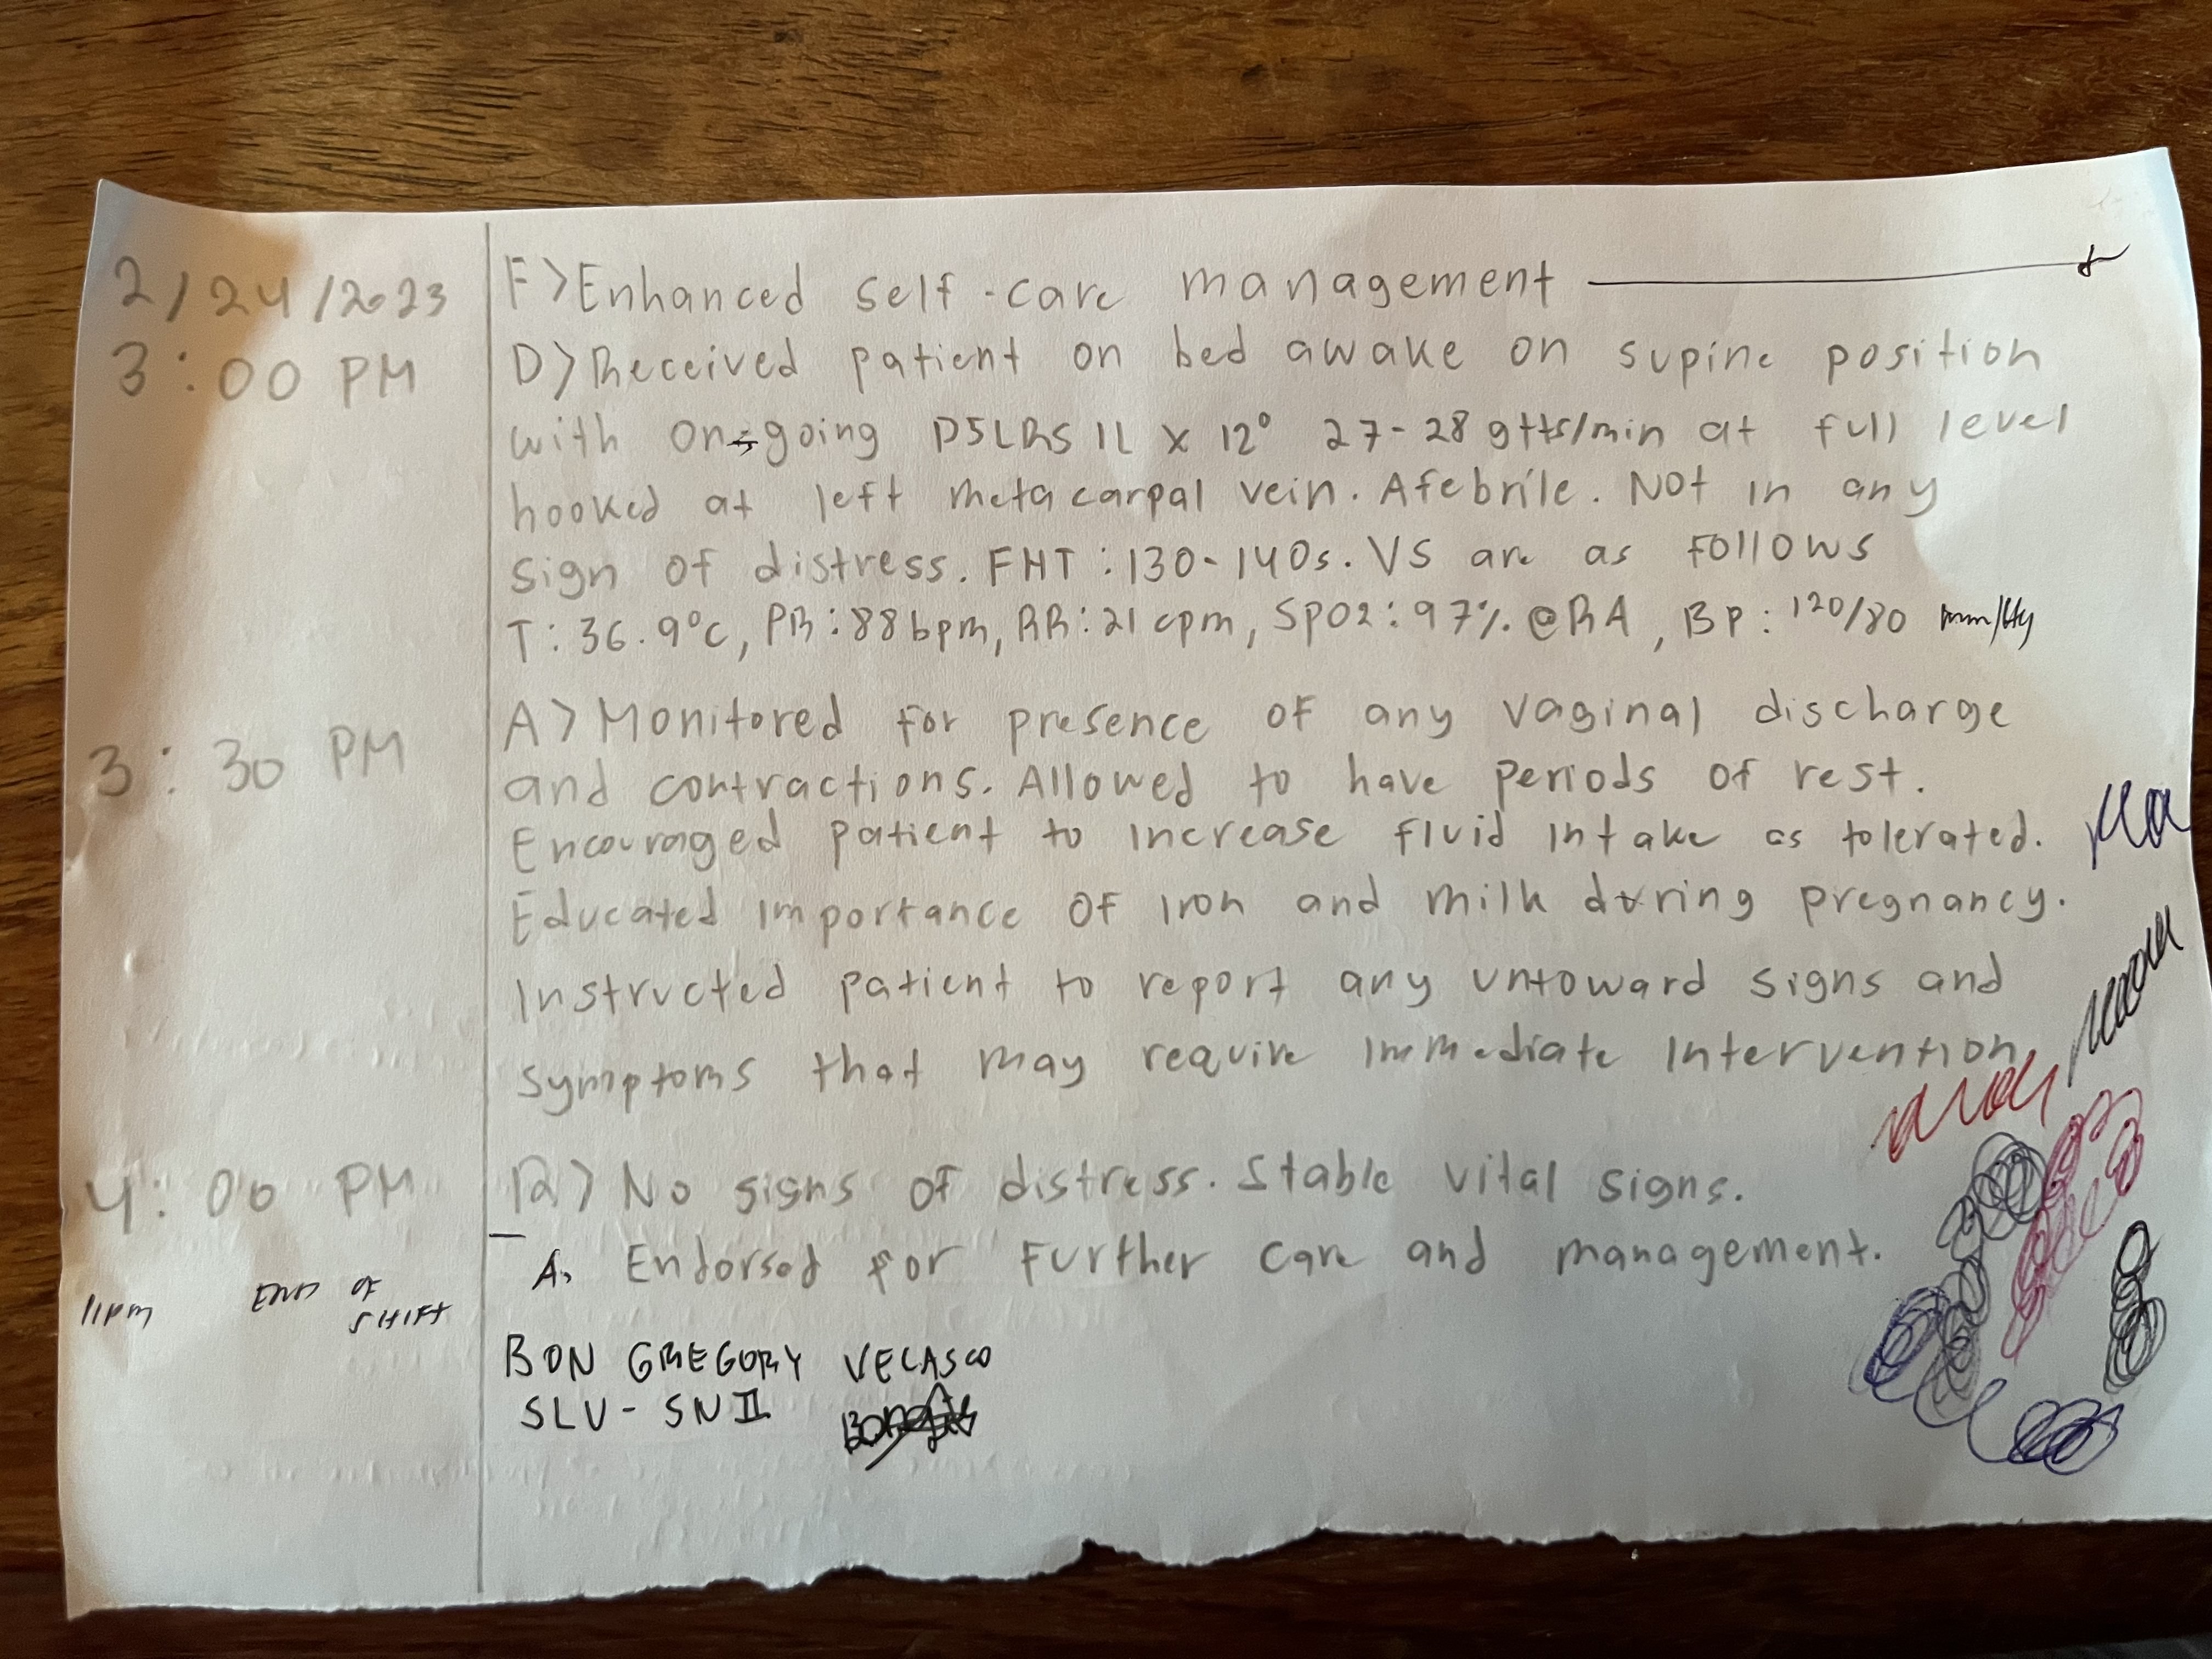 2/24/2023 F>Enhanced self-care management
3:00 PM D>Received patient on bed awake on supine position
with on-going D5LRS 1L x 12° 27-28 gtts/min at full level
hooked at left metacarpal vein. Afebrile. Not in any
sign of distress. FHT:130-140s. VS are as follows
T:36.9°C, PR:88bpm, RR:21 cpm, SPO2:97% @RA, BP:120/80 mm/Hg
3:30 PM A>Monitored for presence of any vaginal discharge
and contractions. Allowed to have periods of rest.
Encouraged patient to increase fluid intake as tolerated.
Educated importance of iron and milk during pregnancy.
Instructed patient to report any untoward signs and
symptoms that may require immediate intervention
4:00 PM R> No signs of distress. Stable vital signs.
11pm END OF SHIFT A. Endorsed for further care and management.
BON GREGORY VELASCO
SLU-SN II